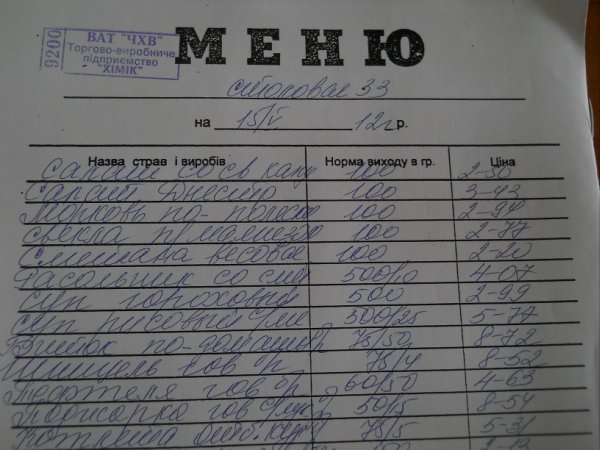 9200
ВАТ "ЧХВ"
Торгово-виробниче
підприємство
"ХІМІК"
МЕНЮ
столовая 33
на 15/V 12г р.
Назва страв і виробів Норма виходу в гр. Ціна
салат со св капу 100 2-50
салат Днестр 100 3-43
Морковь по- 100 2-94
свекла 100 2-77
Сметана весовая 100 2-20
Расольник со сму 500/10 4-07
суп гороховый 500 2-99
суп рисовый 300/25 5-77
Биток по-домашн 75/50 8-72
Шницель гов 75/4 8-52
Тефтеля гов 60/50 4-63
Поджарка гов 50/5 8-54
Котлета 75/5 5-31
100